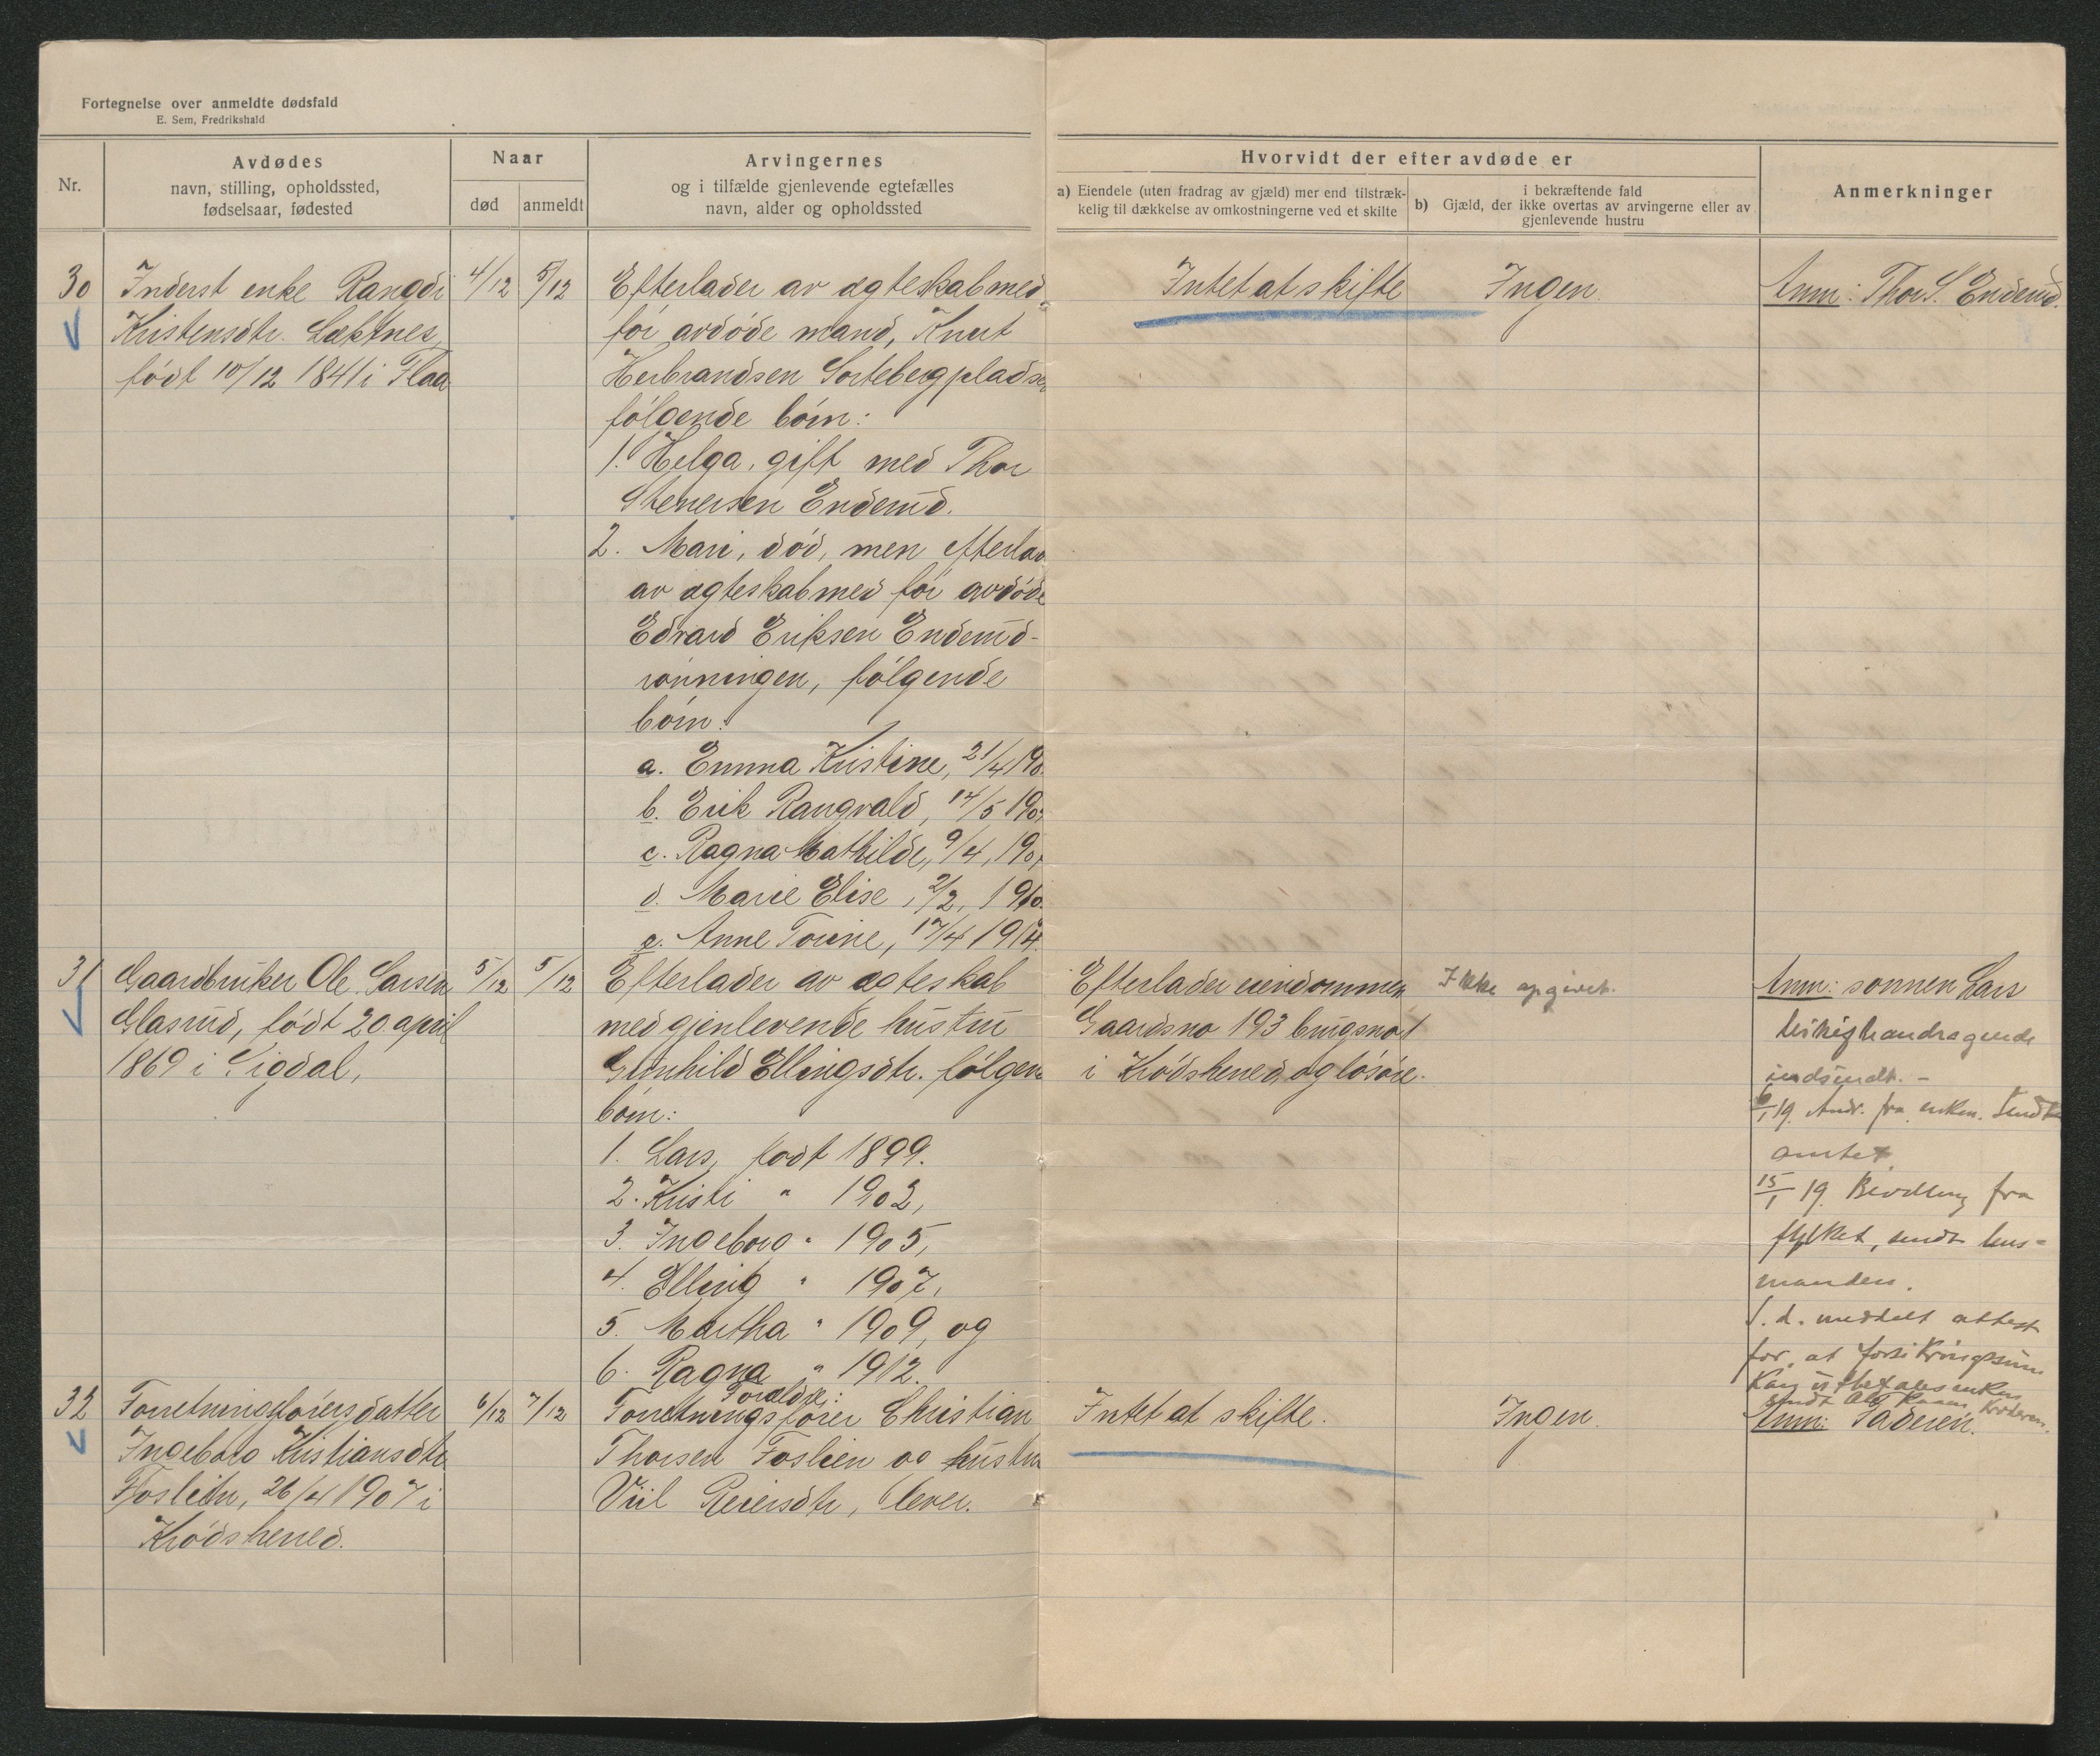 Fortegnelse over anmeldte dødsfald
E. Sem, Fredrikshald
Nr.
Avdødes
navn, stilling, opholdssted,
fødselsaar, fødested
Naar
død
anmeldt
Arvingernes
og i tilfælde gjenlevende egtefælles
navn, alder og opholdssted
Hvorvidt der efter avdøde er
a) Eiendele (uten fradrag av gjæld) mer end tilstræk-
kelig til dækkelse av omkostningerne ved et skifte
i bekræftende fald
b) Gjæld, der ikke overtas av arvingerne eller av
gjenlevende hustru
Anmerkninger
30
Inderst enke Rangdi
Kristensdtr.
født 10/12 1841 i Flaa
4/12
5/12
Efterlader av ægteskab med
før avdøde mand, Knut
Herbrandsen Sortebergpladsen
følgende børn:
1. Helga, gift med Thor
Stenersen Enderud.
2. Mari, død, men efterlad
av ægteskab med før avdøde
Edvard Eriksen Enderud-
rønningen, følgende
børn:
a. Emma Kristine, 21/4 190
b. Erik Rangvald, 14/5 190
c. Ragna Mathilde, 9/4, 190
d. Marie Elise, 2/2, 1910.
e. Anne Torine, 17/4 1914.
Intet at skifte
Ingen
Anm: Thor S. Enderud.
31
Gaardbruker Ole Larsen
Glasrud, født 20 april
1869 i Sigdal,
5/12
5/12
Efterlader av ægteskab
med gjenlevende hustru
Gunhild Ellingsdtr. følgen
børn:
1. Lars, født 1899.
2. Kristi " 1902,
3. Ingeborg " 1905,
4. Elling " 1907,
5. Martha " 1909, og
6. Ragna " 1912.
Efterlader eiendommen
Gaardsno 193 brugsno 1
i Krødshered og løsøre.
Ikke opgivet.
Anm: sønnen Lars
indsendt. -
19. Andr. fra enken. Sendt
amtet.
15/1 19. Bevilling fra
fylket, sendt lens-
manden.
S. d. meddelt attest
for, at forsikringssum
kan utbetales enken
32
Forretningsførers datter
Ingeborg Kristiansdtr
Foslien, 26/4 1907 i
Krødshered.
6/12
7/12
Forældre:
Forretningsfører Christian
Thorsen Foslien og hustru
Reiersdtr, lever.
Intet at skifte.
Ingen
Anm: Faderen.